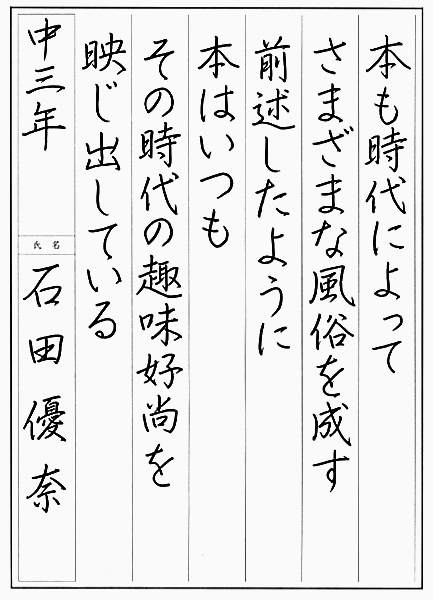 本も時代によって
さまざまな風俗を成す
前述したように
本はいつも
その時代の趣味好尚を
映じ出している
中三年
氏名
石田優奈